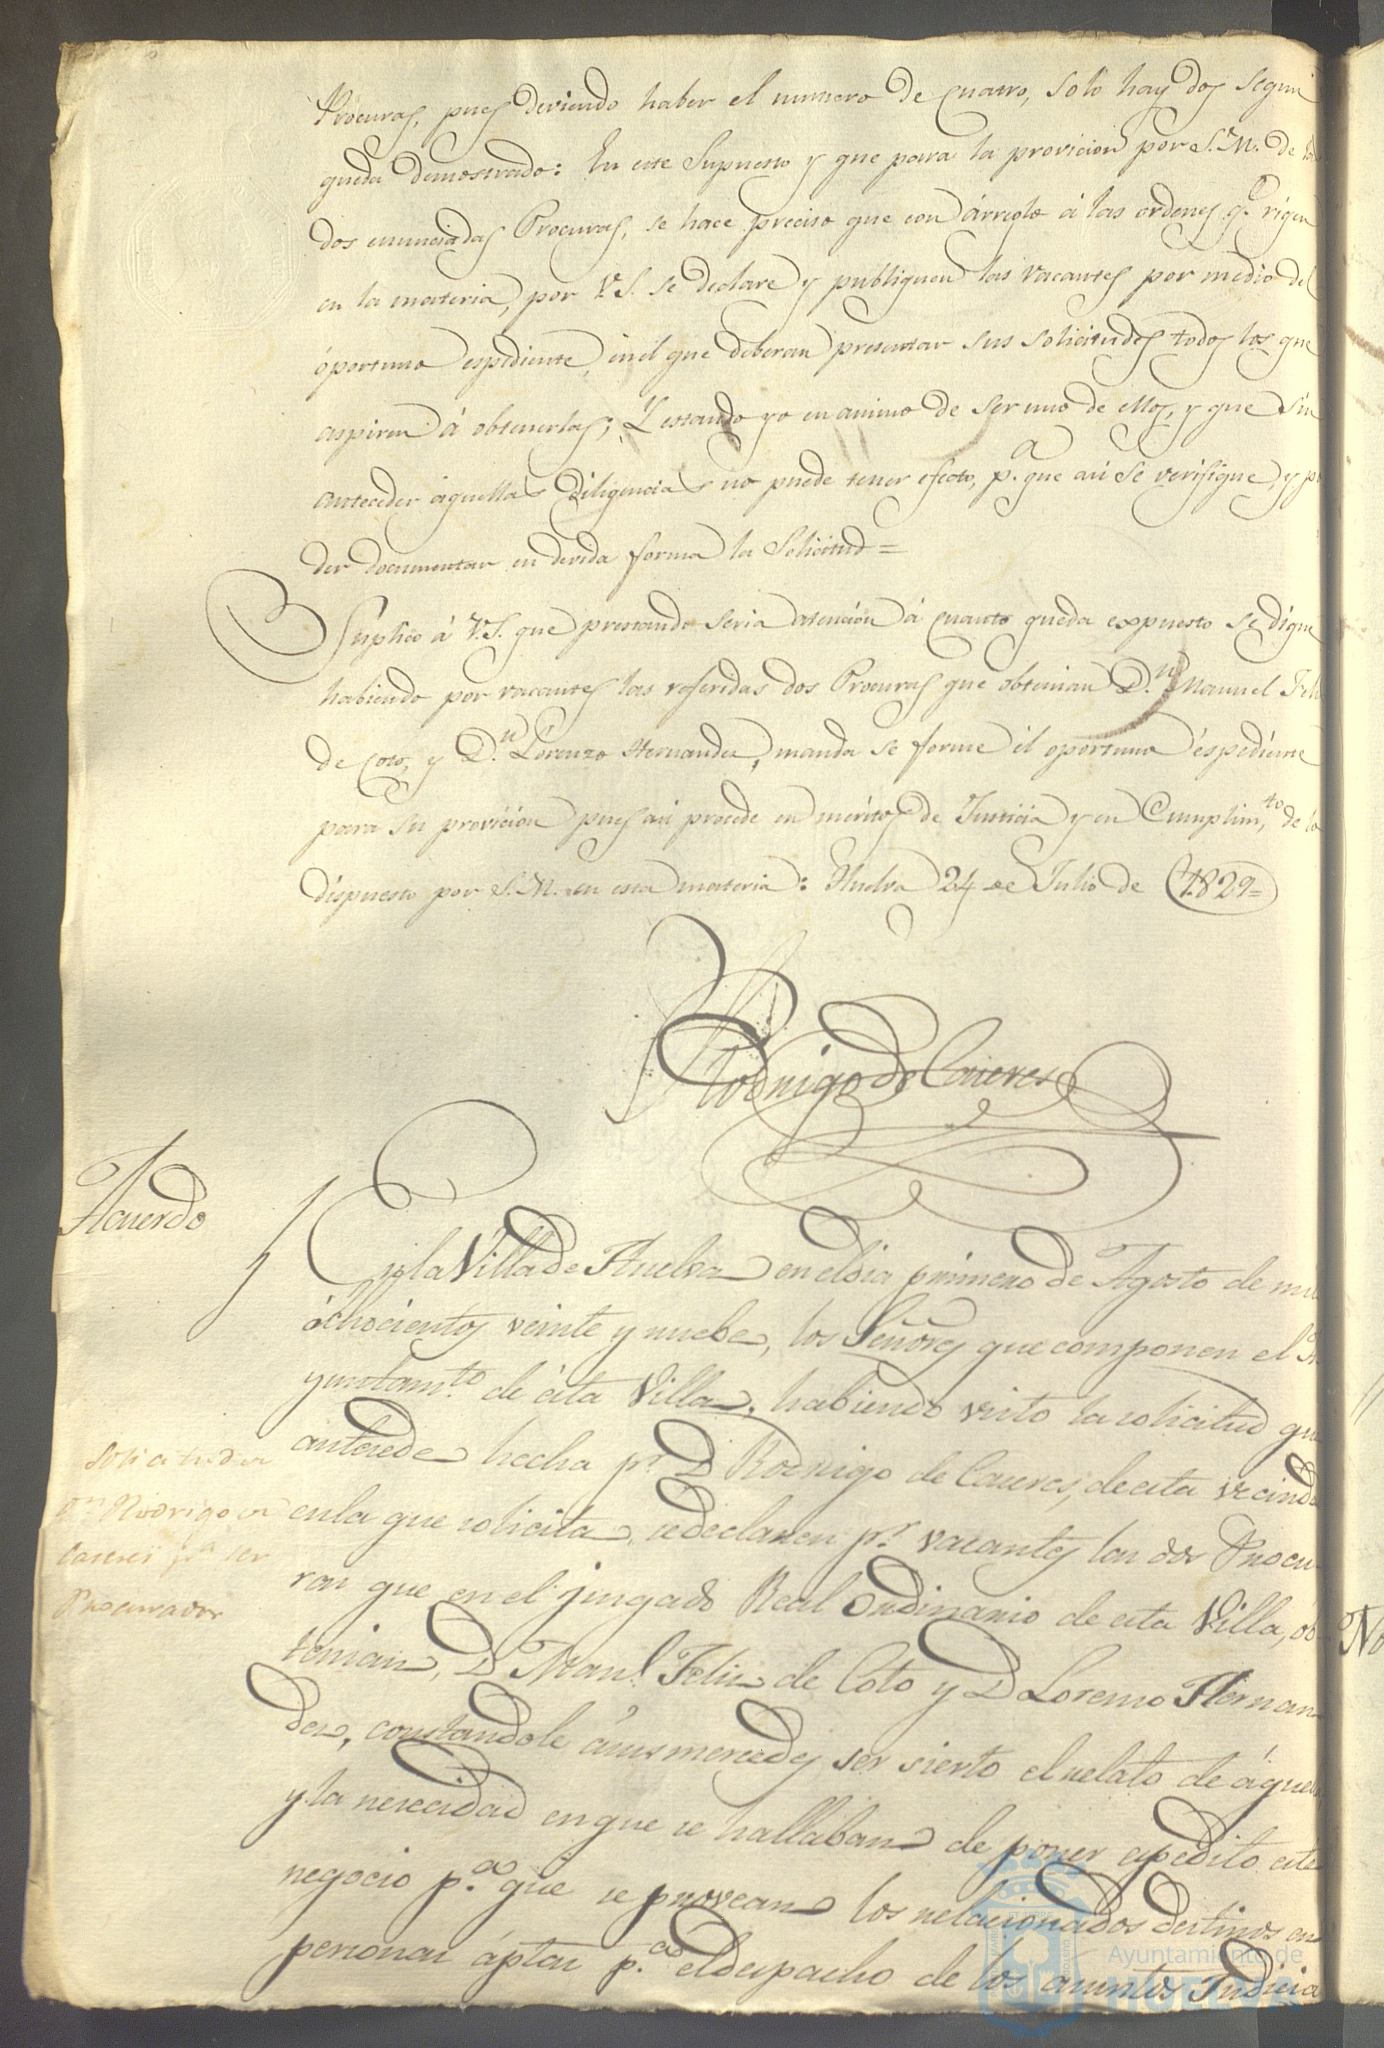 Procuras, pues deviendo haber el numero de Cuatro, solo hay dos segun
queda demostrado: En este Supuesto y que para la provicion por S.M. de las
dos enunciadas Procuras, se hace preciso que con árreglo á las ordenes q.e rigen
en la materia, por V.S. se declare y publiquen las vacantes por medio del
óportuno espediente, en él que deberan presentar sus solicitudes todos los que
aspiren á obtenerlas; Y estando yo en animo de ser uno de ellos, y que sin
anteceder aquellas diligencias no puede tener efecto, p.a que asi se verifique, y po
der documentar en devida forma la Solicitud=
Suplico á V.S. que prestando seria atención á cuanto queda expuesto se digne
habiendo por vacantes las referidas dos Procuras que obtenian D.n Manuel Feliz
de Coto, y D.n Lorenzo Hernandez, manda se forme él oportuno éspediente
para su provicion pues asi procede en méritos de Justicia y en Cumplim.to de lo
dispuesto por S.M. en esta materia: Huelva 24 de Julio de 1829=
Rodrigo de Caceres
Acuerdo
En la Villa de Huelva en el dia primero de Agosto de mil
ochocientos veinte y nuebe, los Señores que componen el A
yuntam.to de esta Villa, habiendo visto la solicitud que
antecede hecha p.r D Rodrigo de Caceres, de esta vecind
en la que solicita, se declaren p.r vacantes las dos Procu
ras que en el juzgado Real Ordinario de esta Villa, ob
tenian, D Man.l Feliz de Coto y D Lorenzo Hernan
dez, constandole á sus mercedes ser sierto el relato de áquella
y la nececidad en que se hallaban de poner expedito este
negocio p.a que se provean los relacionados destinos en
personas áptas p.a el despacho de los asuntos Judicia
Solicitud de
D.n Rodrigo de
Caceres p.a ser
Procurador
No
Ayuntamiento de
HUELVA